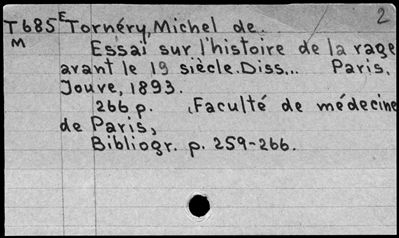 T685 E Tornéry, Michel de. 2
M Essai sur l'histoire de la rage
avant le 19 siècle. Diss... Paris,
Jouve, 1893.
266 p. (Faculté de médecine
de Paris,
Bibliogr. p. 259-266.